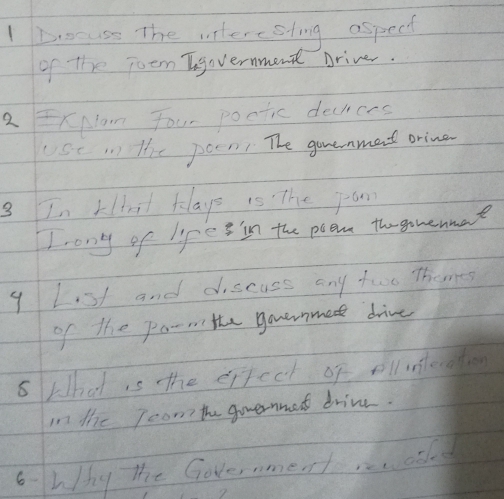 1 Discuss The interesting aspect
of the Poem The government Driver.
2 Explain Four poetic devices
use in the poem, The government Driver
3 In What Ways is The poem
Irony of life in the poem the government
4 List and discuss any two Themes
of the poem the government driver
5 What is the effect of allinteration
in the Poem the government driver.
6- Why The Government